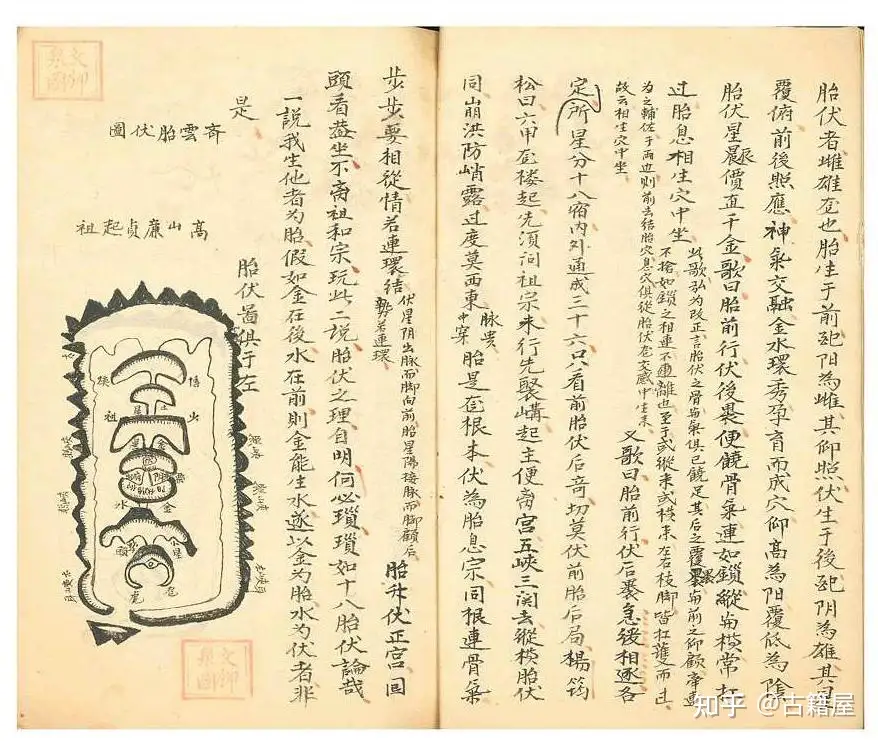 胎伏者雌雄也胎生于前配阳為雌其仰照伏生于後配阴為雄其星
覆俯前後照應神氣交融金水環秀孕育而成穴仰高為阳覆低為陰
胎伏星晨價直千金歌曰胎前行伏後裹便饒骨氣連如鎖縱与横常打
过胎息相生穴中坐
此歌弘为改正言胎伏之骨与氣俱已饒足其后之覆裹与前之仰顧牽連
不捨如鎖之相連不離也至于或縱来或横来左右枝脚皆枉護而过
為之輔佐于两边則前去结胎穴息穴俱從胎伏交感中生来
故云相生穴中坐
又歌曰胎前行伏后裹急後相逐各
定所星分十八宿内外通成三十六只看前胎伏后奇切莫伏前胎后局楊筠
松曰六甲楼起先須问祖宗来行先聚講起主便离宫五峽三关去縱横胎伏
同崩洪防峭露过度莫西東
脉贵
中穿
胎是根本伏為胎息宗同根連骨氣
步步要相從情若連環结
伏星阴出脉而脚向前胎星陽接脉而脚顧后
勢若連環
胎升伏正宫回
頭看蓋坐不离祖和宗玩此二說胎伏之理自明何必瑣瑣如十八胎伏論哉
一說我生他者为胎假如金在後水在前則金能生水遂以金為胎水为伏者非
是
胎伏啚俱于左
齐雲胎伏圖
高山廉貞起祖
祖
金
水
知乎 @古籍屋